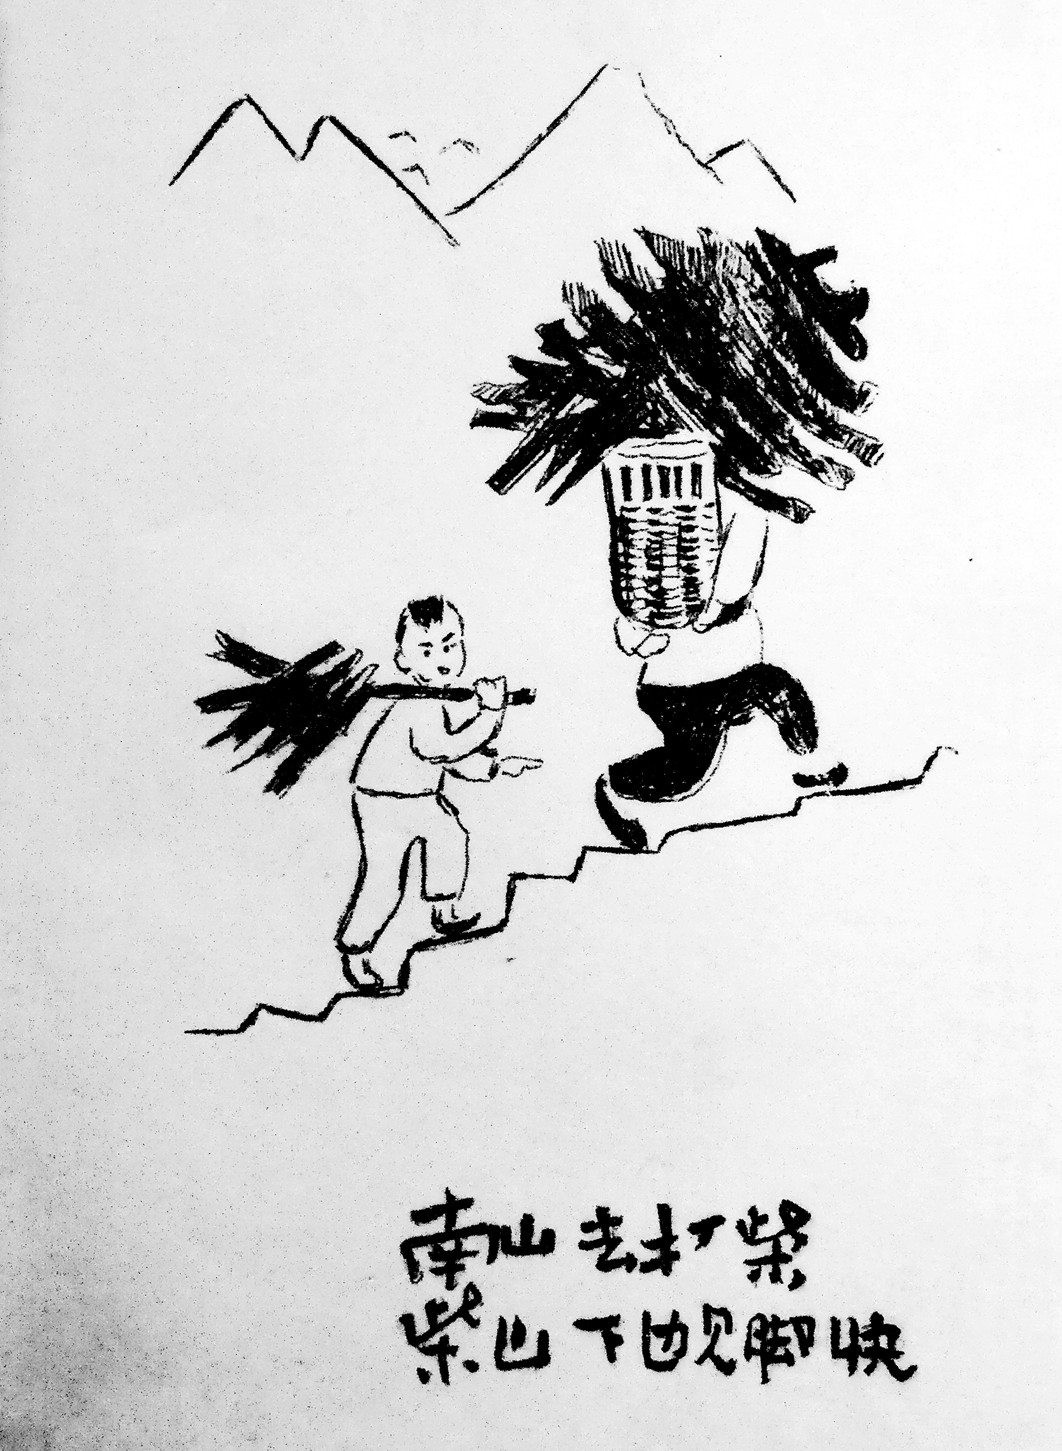 南山去打柴
柴山下边见脚快